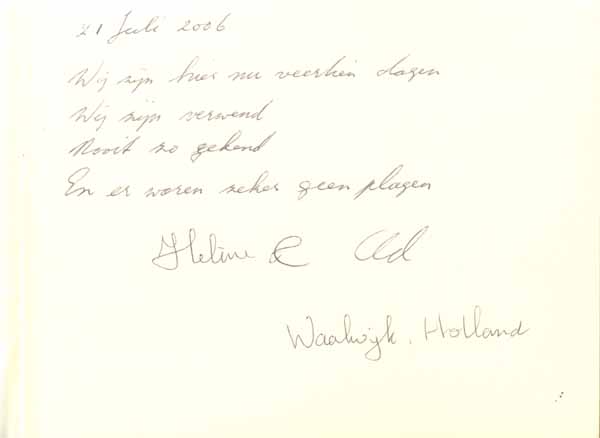 21 Juli 2006
Wij zijn hier nu veertien dagen
Wij zijn verwend
Nooit zo gekend
En er waren zeker geen plagen
Helène & Ad
Waalwijk, Holland